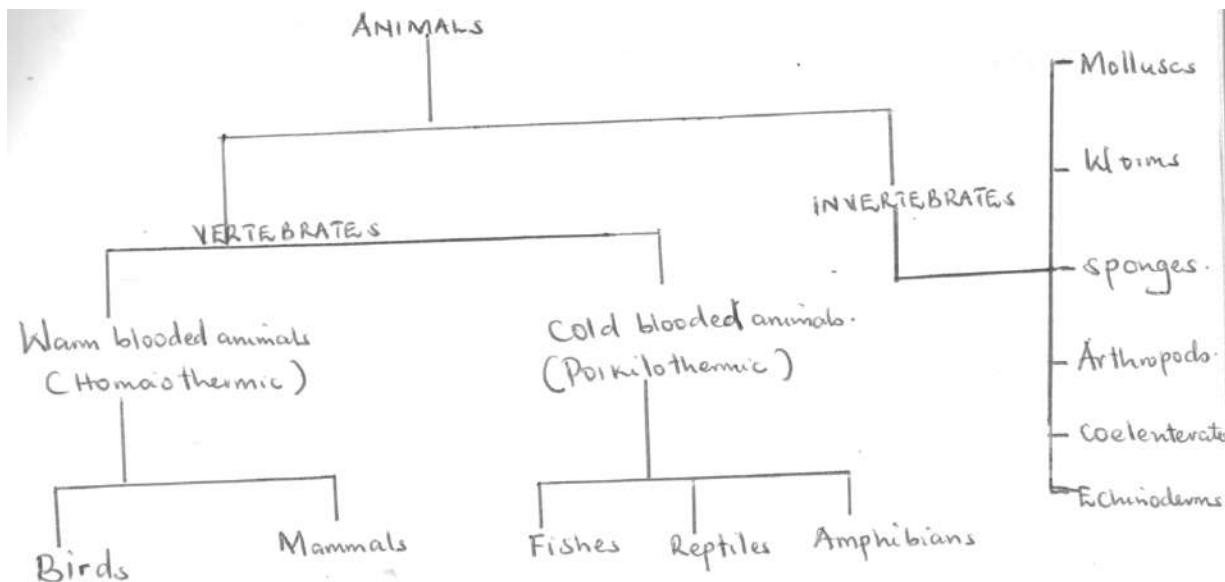 ANIMALS
VERTEBRATES
INVERTEBRATES
Warm blooded animals
(Homoiothermic)
Cold blooded animals.
(Poikilothermic)
Birds
Mammals
Fishes
Reptiles
Amphibians
Molluscs
Worms
Sponges.
Arthropods.
Coelenterate
Echinoderms